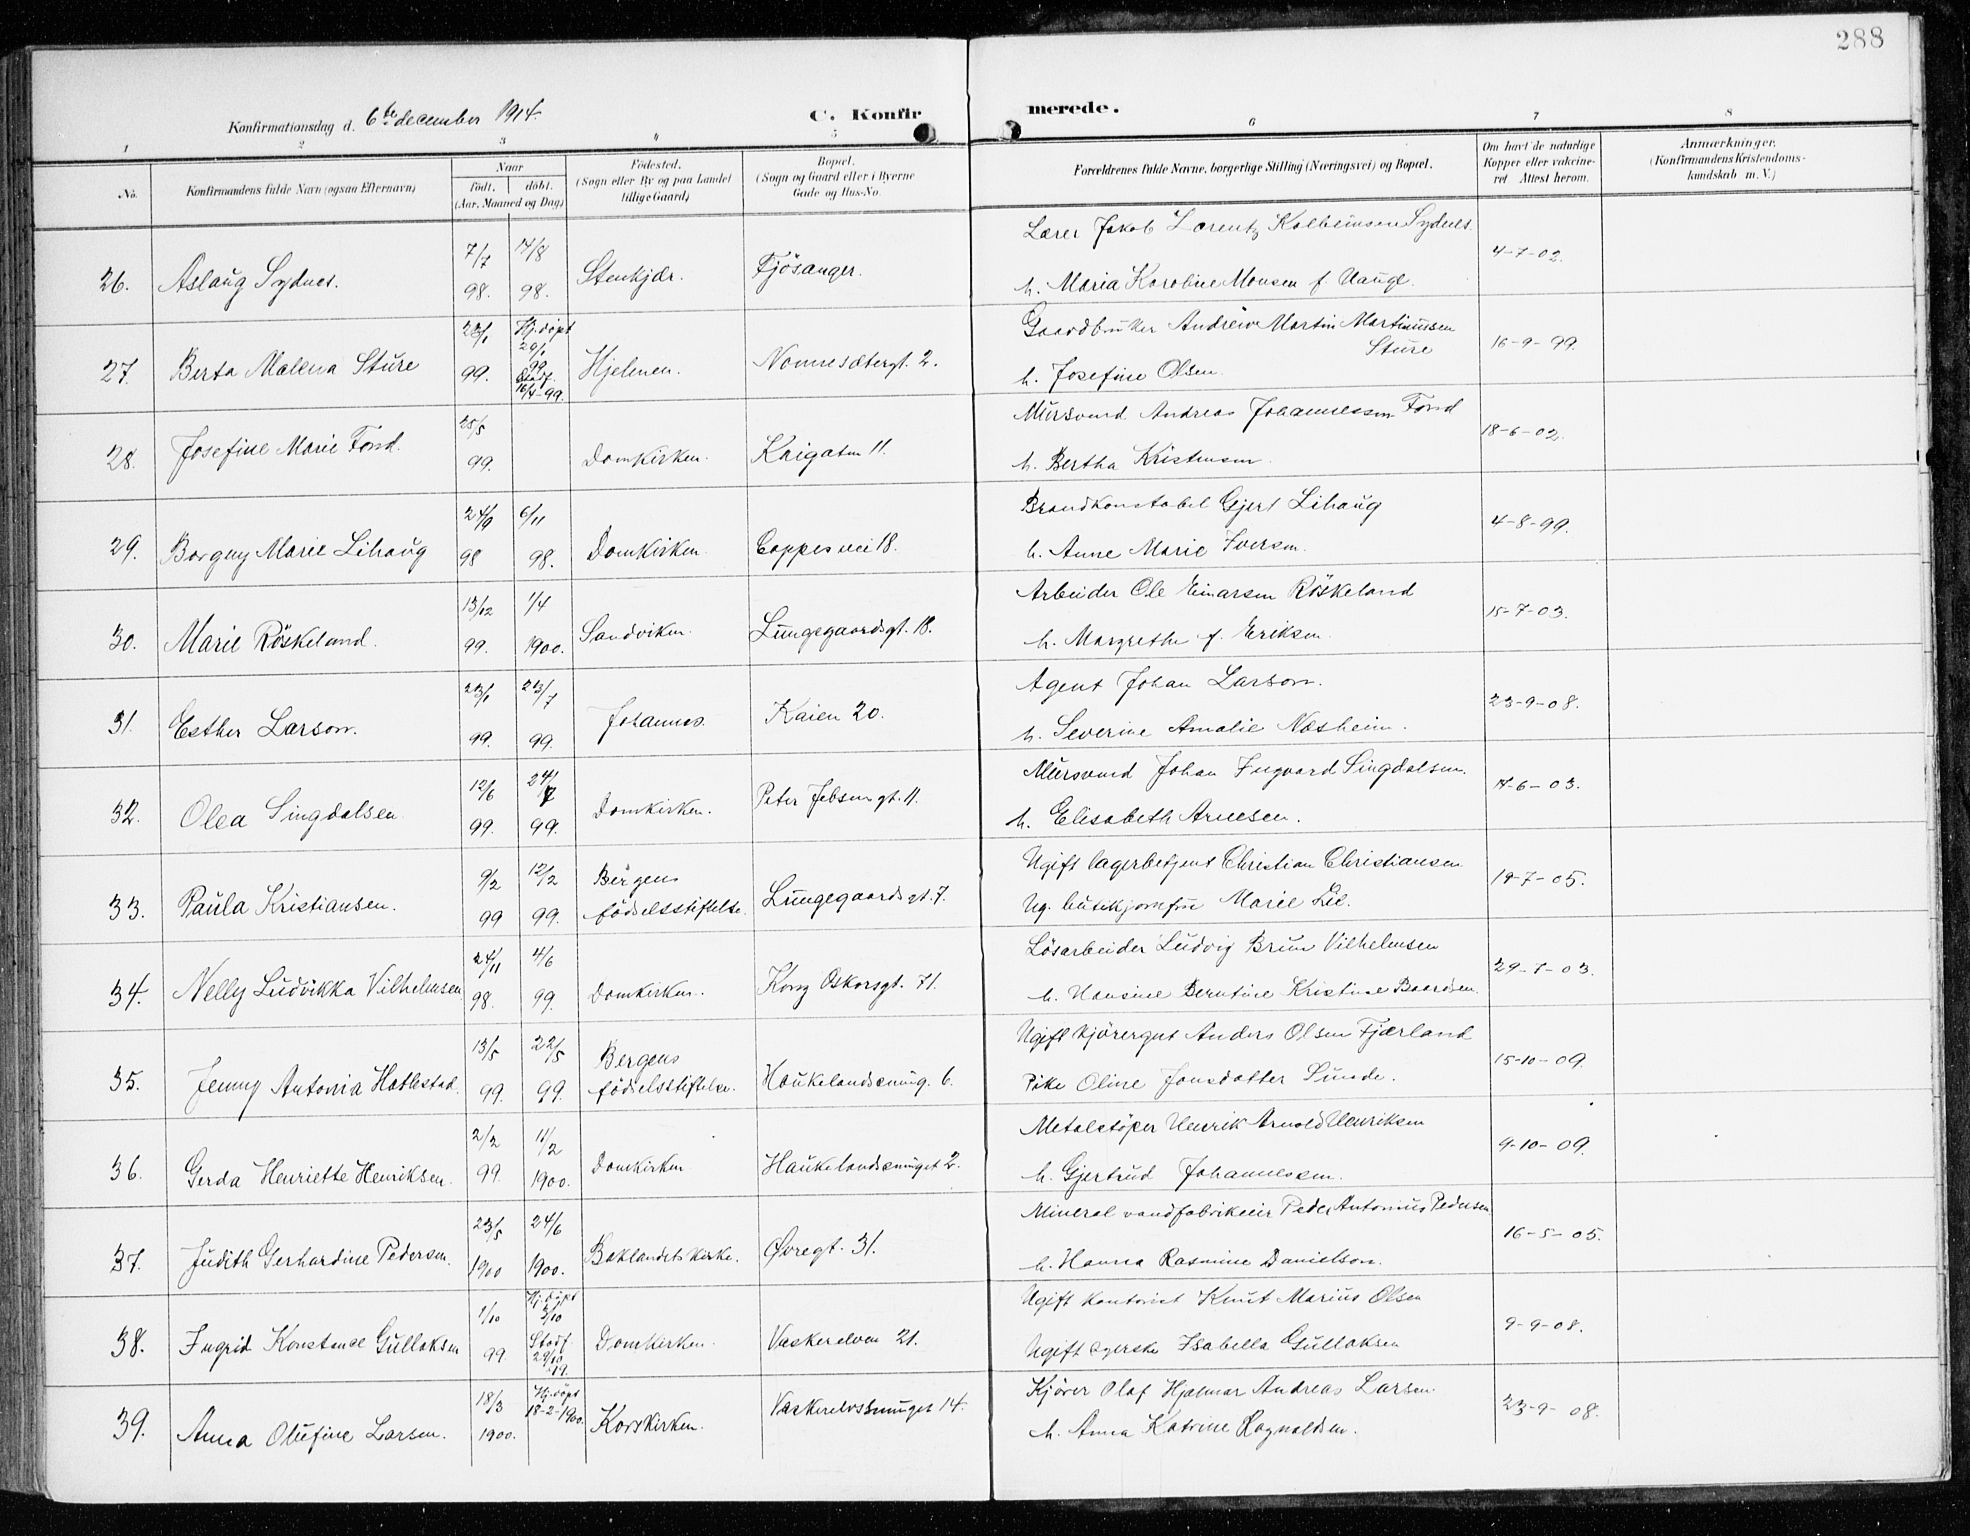 288
Konfirmationsdag d. 6te december 1914.
C. Konfirmerede.
1 2 3 4 5 6 7 8
No.
Konfirmandens fulde Navn (ogsaa Efternavn)
Naar
født. døbt.
(Aar, Maaned og Dag)
Fødested.
(Sogn eller By og paa Landet
tillige Gaard)
Bopæl.
(Sogn og Gaard eller i Byerne
Gade og Hus-No.
Forældrenes fulde Navne, borgerlige Stilling (Næringsvei) og Bopæl.
Om havt de naturlige
Kopper eller vakcine-
ret. Attest herom.
Anmærkninger,
(Konfirmandens Kristendoms-
kundskab m. V.)
26. Aslaug Sydnes. 7/7 98. 14/8 98. Stenkjær. Fjösanger.
Lærer Jakob Lorentz Kolbeinsen Sydnes
h. Maria Karoline Monsen f. Hauge. 4-7-02.
27. Berta Malena Sture 23/1 99. Hj.döpt 29/1 99 Stadf. 16/4-99. Hjelmen. Nonnesætergt. 2.
Gaardbruker Andreas Martin Martinusen
Sture
h. Josefine Olsen. 16-9-99.
28. Josefine Marie Fond. 25/5 99. Domkirken. Kaigaten 11.
Mursvend Andreas Johannessen Fond
h. Bertha Kristensen. 18-6-02.
29. Borgny Marie Lihaug 24/9 98 6/11 98. Domkirken. Coppesvei 18.
Brandkonstabel Gjert Lihaug
h. Anne Marie Iversen. 4-8-99.
30. Marie Röskeland. 13/12 99. 1/4 1900. Sandviken. Lungegaardsgt. 18.
Arbeider Ole Einarsen Röskeland
h. Margrethe f. Eriksen. 15-7-03.
31. Esther Larson. 23/1 99. 23/7 99. Johannes. Kaien 20.
Agent Johan Larson.
h. Severine Amalie Næsheim. 23-9-08.
32. Olea Singdalsen. 12/6 99. 24/7 99. Domkirken. Peter Jebsensgt. 11.
Mursvend Johan Ingvard Singdalsen.
h. Elisabeth Arnesen. 4-6-03.
33. Paula Kristiansen. 9/2 99 12/2 99. Bergens födselsstiftelse. Lungegaardsgt. 7.
Ugift lagerbetjent Christian Christiansen
Ug. butikjomfru Marie Lie. 14-7-05.
34. Nelly Ludvikka Vilhelmsen 24/11 98. 4/6 99. Domkirken. Kong Oskarsgt. 71.
Lösarbeider Ludvig Brun Vilhelmsen
h. Hansine Berntine Kristine Baardsen. 29-7-03.
35. Jenny Antonia Hatlestad. 13/5 99. 22/5 99. Bergens födselsstiftelse. Haukelandssmug. 6.
Ugift kjörergut Anders Olsen Fjærland
Pike Oline Jonsdatter Sunde. 15-10-09.
36. Gerda Henriette Henriksen. 2/2 99. 11/2 1900. Domkirken. Haukelandssmuget 2.
Metalstöper Henrik Arnold Henriksen
h. Gjertrud Johannessen. 9-10-09.
37. Judith Gerhardine Pedersen. 23/5 1900 24/6 1900. Baklandets kirke. Øvregt. 31.
Mineralvandfabrikeier Peder Antonius Pedersen
h. Hanna Rasmine Danielson. 16-5-05.
38. Ingrid Konstanse Gullaksen 1/10 99. Hj.döpt 2/10 Stadf 29/10 Domkirken. Vaskerelven 21.
Ugift kontorist Knut Marius Olsen
Ugift Isabella Gullaksen 9-9-08.
39. Anna Olufine Larsen. 18/3 1900. Hj.döpt 18-2-1900. Korskirken. Vaskerelvssmuget 14.
Kjörer Olaf Hjalmar Andreas Larsen
h. Anna Katrine Ragnaldsen. 23-9-08.